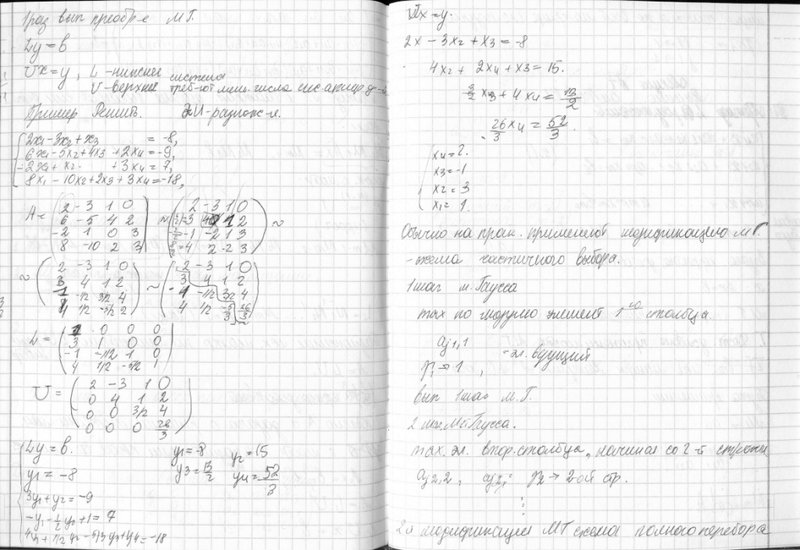 1 раз вып преобр-е МГ.
Ly = b
Ux = y, L - нижнее система
U - верхнее треб-ют мин. числа
Пример Решить. LU-разлож-я.
2x₁ - 3x₂ + x₃ = -8,
6x₁ - 5x₂ + 4x₃ + 2x₄ = -9,
-2x₁ + x₂ + 3x₄ = 7,
8x₁ - 10x₂ + 2x₃ + 3x₄ = -18,
A =
2 -3 1 0
6 -5 4 2
-2 1 0 3
8 -10 2 3
~
2 -3 1 0
3 4 1 2
-1 -2 1 3
4 2 -2 3
~
~
2 -3 1 0
3 4 1 2
-1/2 3/2 4
4 1/2 -5/2 2
~
2 -3 1 0
3 4 1 2
-1 -1/2 3/2 4
4 1/2 -5/3 26/3
L =
1 0 0 0
3 1 0 0
-1 -1/2 1 0
4 1/2 -5/2 1
U =
2 -3 1 0
0 4 1 2
0 0 3/2 4
0 0 0 26/3
Ly = b. y₁ = -8 y₂ = 15
y₁ = -8 y₃ = 13/2 y₄ = 52/3
3y₁ + y₂ = -9
-y₁ - 1/2 y₂ + 1 = 7
4y₁ + 1/2 y₂ - 5/3 y₃ + y₄ = -18
Ux = y.
2x - 3x₂ + x₃ = -8
4x₂ + 2x₄ + x₃ = 15.
3/2 x₃ + 4x₄ = 13/2
26/3 x₄ = 52/3.
x₄ = 2.
x₃ = -1
x₂ = 3
x₁ = 1.
Обычно на прак. применяют модификацию МГ.
- схема частичного выбора.
1 шаг м. Гаусса
max по модулю элемент 1го столбца.
aj1,1 - эл. ведущий
j1 → 1,
вып 1 шаг М. Г.
2 шаг М. Гаусса.
max. эл. втор. столбца, начиная со 2-й строки
aj2,2, j2 → 2-ой стр.
⋮
2я модификация МГ схема полного перебора